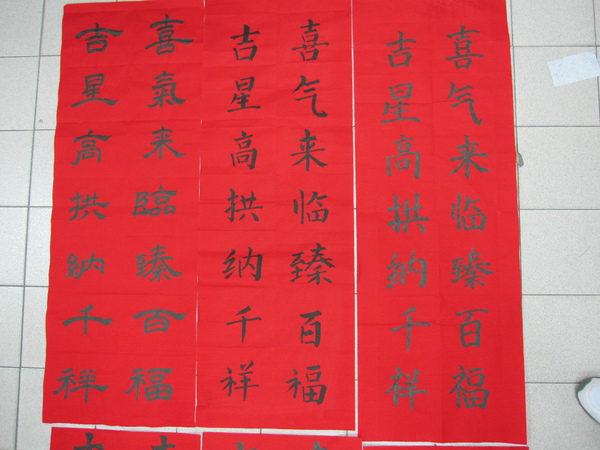 喜气来临臻百福
吉星高拱纳千祥
喜气来临臻百福
吉星高拱纳千祥
喜氣来臨臻百福
吉星高拱納千祥